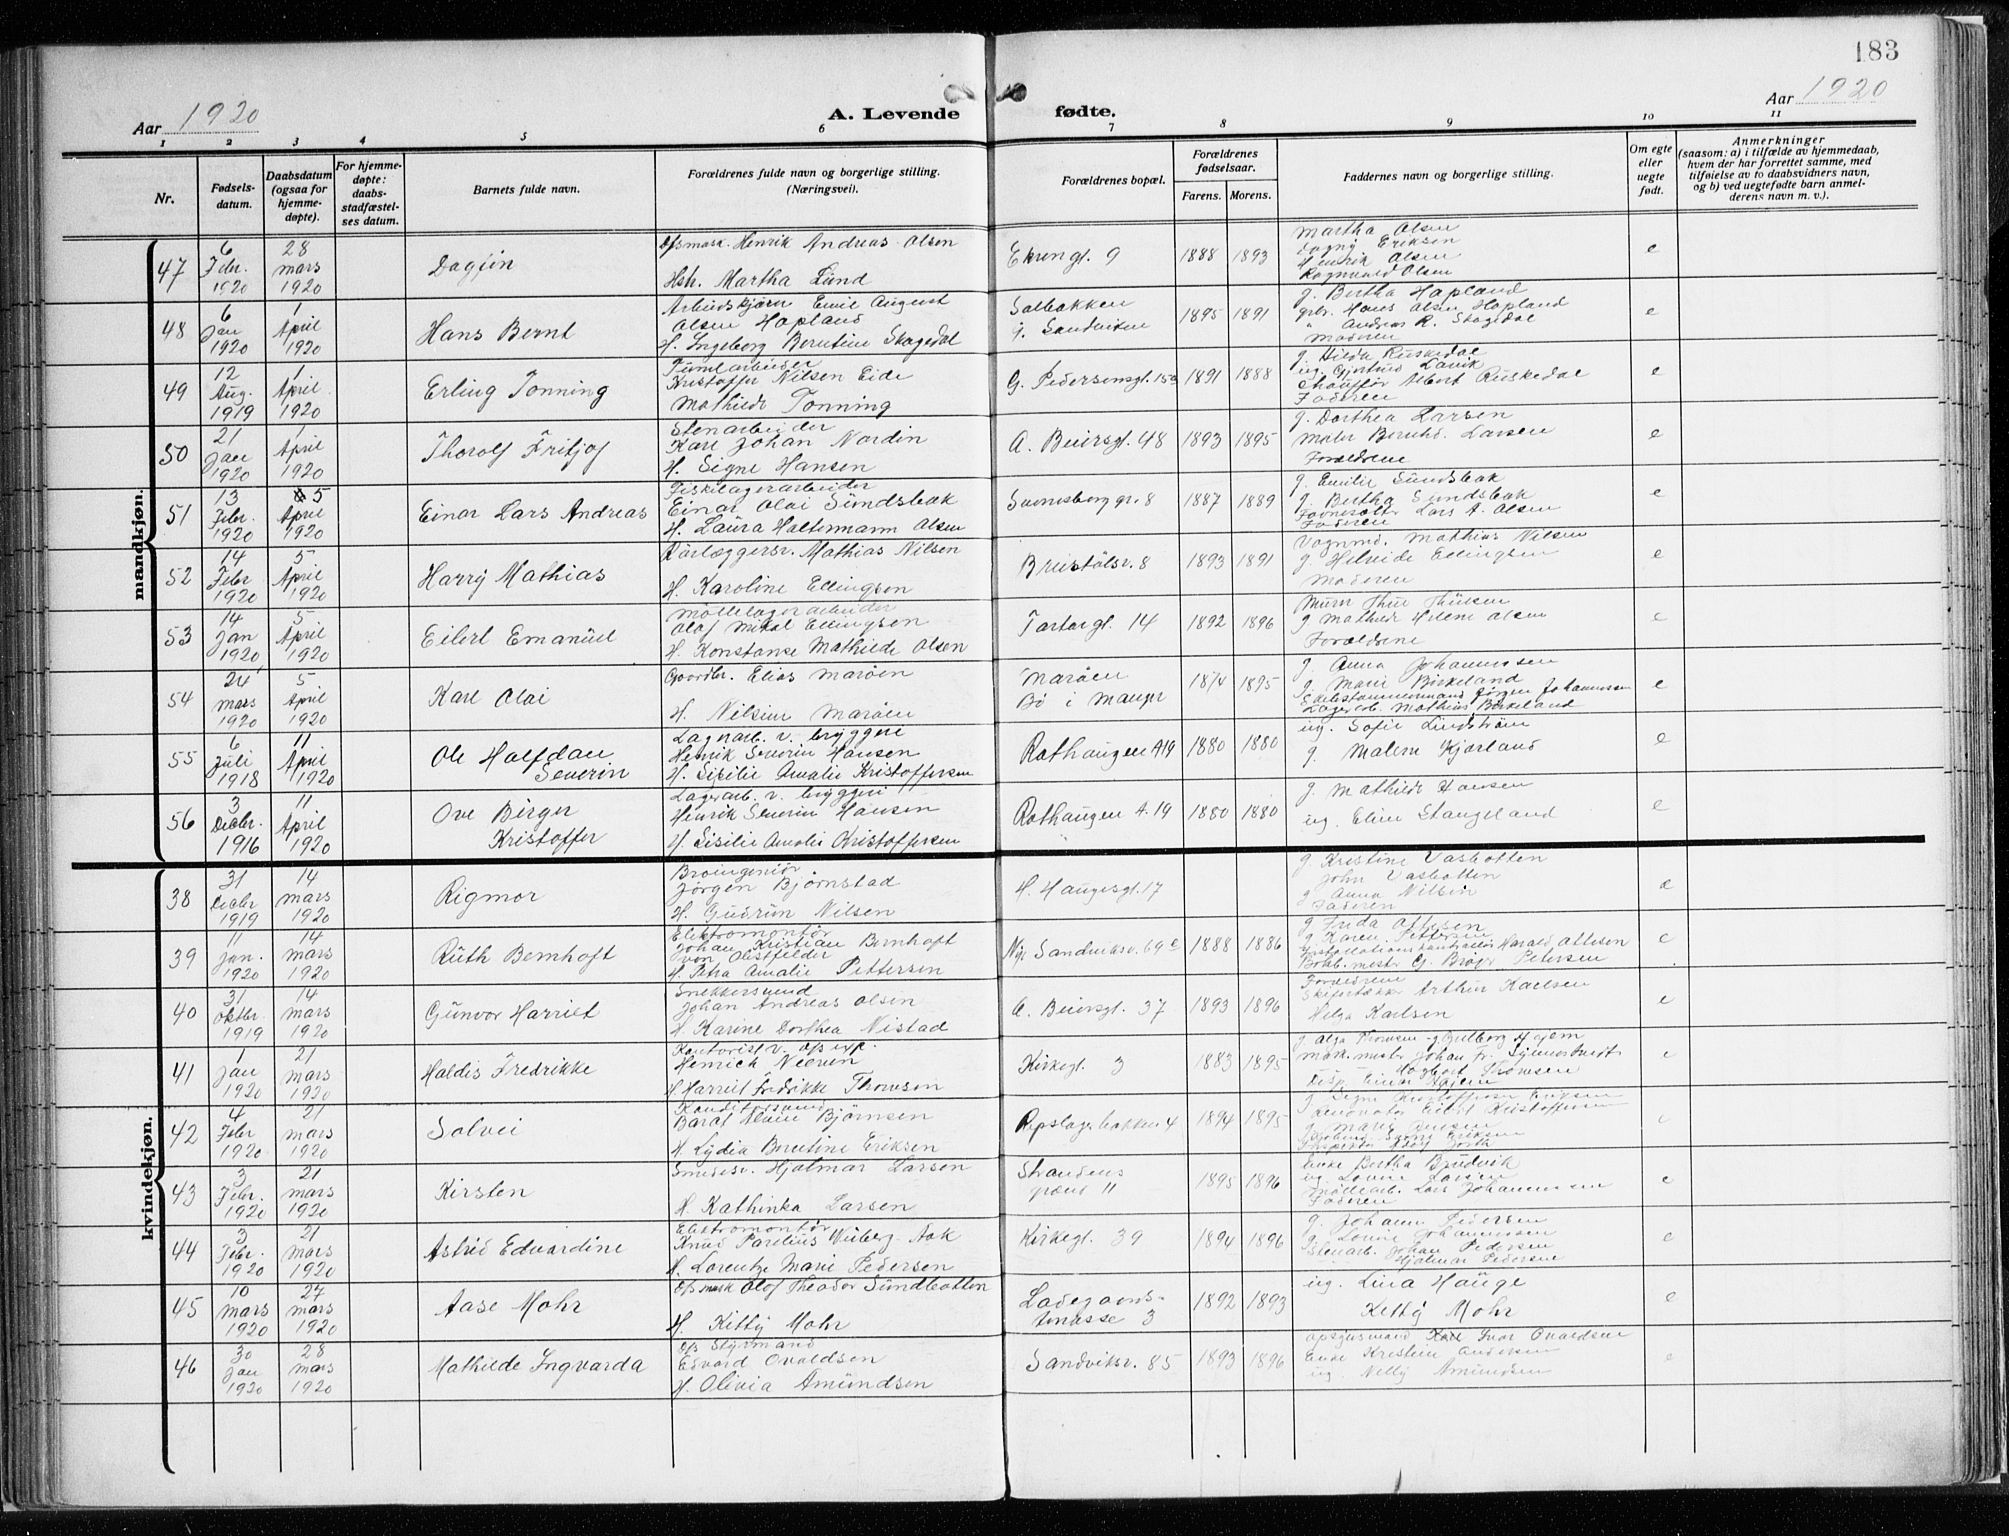 183
Aar 1920
A. Levende fødte.
Aar 1920
1 2 3 4 5 6 7 8 9 10 11
Nr.
Fødsels-
datum.
Daabsdatum
(ogsaa for
hjemme-
døpte).
For hjemme-
døpte:
daabs-
stadfæstel-
ses datum.
Barnets fulde navn.
Forældrenes fulde navn og borgerlige stilling.
(Næringsvei).
Forældrenes bopæl.
Forældrenes
fødselsaar.
Farens. Morens.
Faddernes navn og borgerlige stilling.
Om egte
eller
uegte
født.
Anmerkninger
(saasom: a) i tilfælde av hjemmedaab,
hvem der har forrettet samme, med
tilføielse av to daabsvidners navn,
og b) ved uegtefødte barn anmel-
derens navn m. v.).
mandkjøn.
47
6 Febr. 1920
28 mars 1920
Dagfin
Henrik Andreas Olsen
Martha Lund
Ekrengt. 9
1888 1893
Martha Olsen
Dagny Eriksen
Henrik Olsen
Ragnvald Olsen
e
48
6 Jan 1920
1 April 1920
Hans Bernt
Emil August
Olsen Hopland
H. Ingeborg Berntine Skagedal
Solbakken
Sandviken
1895 1891
g. Bertha Hopland
gbr. Hans Olsen Hopland
Andreas R. Skagedal
Moderen
e
49
12 Aug. 1919
1 April 1920
Erling Tonning
Kristoffer Nilsen Eide
Mathilde Tonning
G. Pedersensgt. 15
1891 1888
g. Hilda Ruskedal
ug. Gjertrud Lavik
Chauffør Albert Ruskedal
Faderen
e
50
21 Jan 1920
1 April 1920
Thorolf Fritjof
Stenarbeider
Karl Johan Nordin
H. Signe Hansen
A. Beiersgt. 48
1893 1895
g. Dorthea Larsen
Maler Bernh. Larsen
Forældrene
e
51
13 Febr. 1920
5 April 1920
Einar Lars Andreas
Einar Olai Sundsbak
H. Laura Haltermann Olsen
gr. 8
1887 1889
g. Emilie Sundsbak
g. Bertha Sundsbak
Lars A. Olsen
Faderen
e
52
14 Febr 1920
5 April 1920
Harry Mathias
Mathias Nilsen
H. Karoline Ellingsen
Breistølsv. 8
1893 1891
Vognmd. Mathias Nilsen
Ellingsen
Moderen
e
53
14 Jan 1920
5 April 1920
Eilert Emanuel
Møllelagerarbeider
Olaf Mikal Ellingsen
H. Konstanse Mathilde Olsen
Tartargt. 14
1892 1896
g. Mathilde Helene Olsen
Forældrene
e
54
24 mars 1920
5 April 1920
Karl Olai
Gaardbr. Elias Marøen
H. Nilsine Marøen
Marøen
Bø i Manger
1874 1895
g. Anna Johannessen
g. Marie Birkeland
Jørgen Johannessen
Lagerarb. Mathias Birkeland
e
55
6 Juli 1918
11 April 1920
Ole Halfdan
Severin
Lagerarb. v. bryggeri
Henrik Severin Hansen
H. Sisilie Amalie Kristoffersen
Rothaugen A19
1880 1880
ug. Sofie Lindstrøm
g. Malene Kjørland
e
56
3 Decbr. 1916
11 April 1920
Ove Birger
Kristoffer
Lagerarb. v. bryggeri
Henrik Severin Hansen
H. Sisilie Amalie Kristoffersen
Rothaugen A. 19
1880 1880
g. Mathilde Hansen
ug. Eline Stangeland
e
kvindekjøn.
38
31 Decbr 1919
14 mars 1920
Rigmor
Broingeniør
Jørgen Bjørnstad
H. Gudrun Nilsen
H. Haugesgt. 17
g. Kristine Vasbotten
John Vasbotten
g. Anna Nilsen
Faderen
e
39
11 Jan. 1920
14 mars 1920
Ruth Bernhoft
Elektromontør
Johan Kristian Bernhoft
von
H. Petra Amalie Pettersen
Nye Sandviksv. 69 c
1888 1886
g. Frida Ottesen
g. Karen Pettersen
Harald Ottesen
Petersen
e
40
31 oktbr. 1919
14 mars 1920
Gunvor Harriet
Snekkersvend
Johan Andreas Olsen
H. Karine Dorthea Nistad
A. Beiersgt. 37
1893 1896
Forældrene
Arthur Karlsen
Helga Karlsen
e
41
1 Jan 1920
21 mars 1920
Haldis Fredrikke
Henrich Neeven
H. Harriet Fredrikke Thomsen
Kirkegt. 3
1883 1895
mask.mester Johan Fr.
Hagbart Thomsen
Disp. Einar
e
42
4 Febr 1920
21 mars 1920
Solvei
Bjørnsen
H. Lydia Berntine Eriksen
Repslagerbakken 4
1894 1895
Eilert Kristoffersen
g. Marie Jensen
43
3 Febr. 1920
21 mars 1920
Kirsten
Smedesv. Hjalmar Larsen
H. Kathinka Larsen
Strandens
plads 11
1895 1896
Enke Bertha Brudvik
ug. Lovise Larsen
Møllearb. Lars Johannessen
Faderen
e
44
3 Febr. 1920
21 mars 1920
Astrid Edvardine
Elektromontør
Knud Parelius Wiberg Aak
H. Lorentze Marie Pedersen
Kirkegt. 39
1894 1896
g. Johanne Pedersen
g. Lovise Johannessen
Stenarb. Johan Pedersen
Hjalmar Pedersen
e
45
10 mars 1920
27 mars 1920
Aase Mohr
Olof Theodor Sundbotten
H. Kitty Mohr
Ladegaards-
terrasse 3
1892 1893
ug. Lina Hauge
Kitty Mohr
e
46
30 Jan 1920
28 mars 1920
Mathilde Ingvarda
Styrmand
Edvard Ovaldsen
H. Olivia Amundsen
Sandviksv. 85
1893 1896
Karl Ivar Ovaldsen
Enke Kristine Andersen
ug. Nelly Amundsen
e